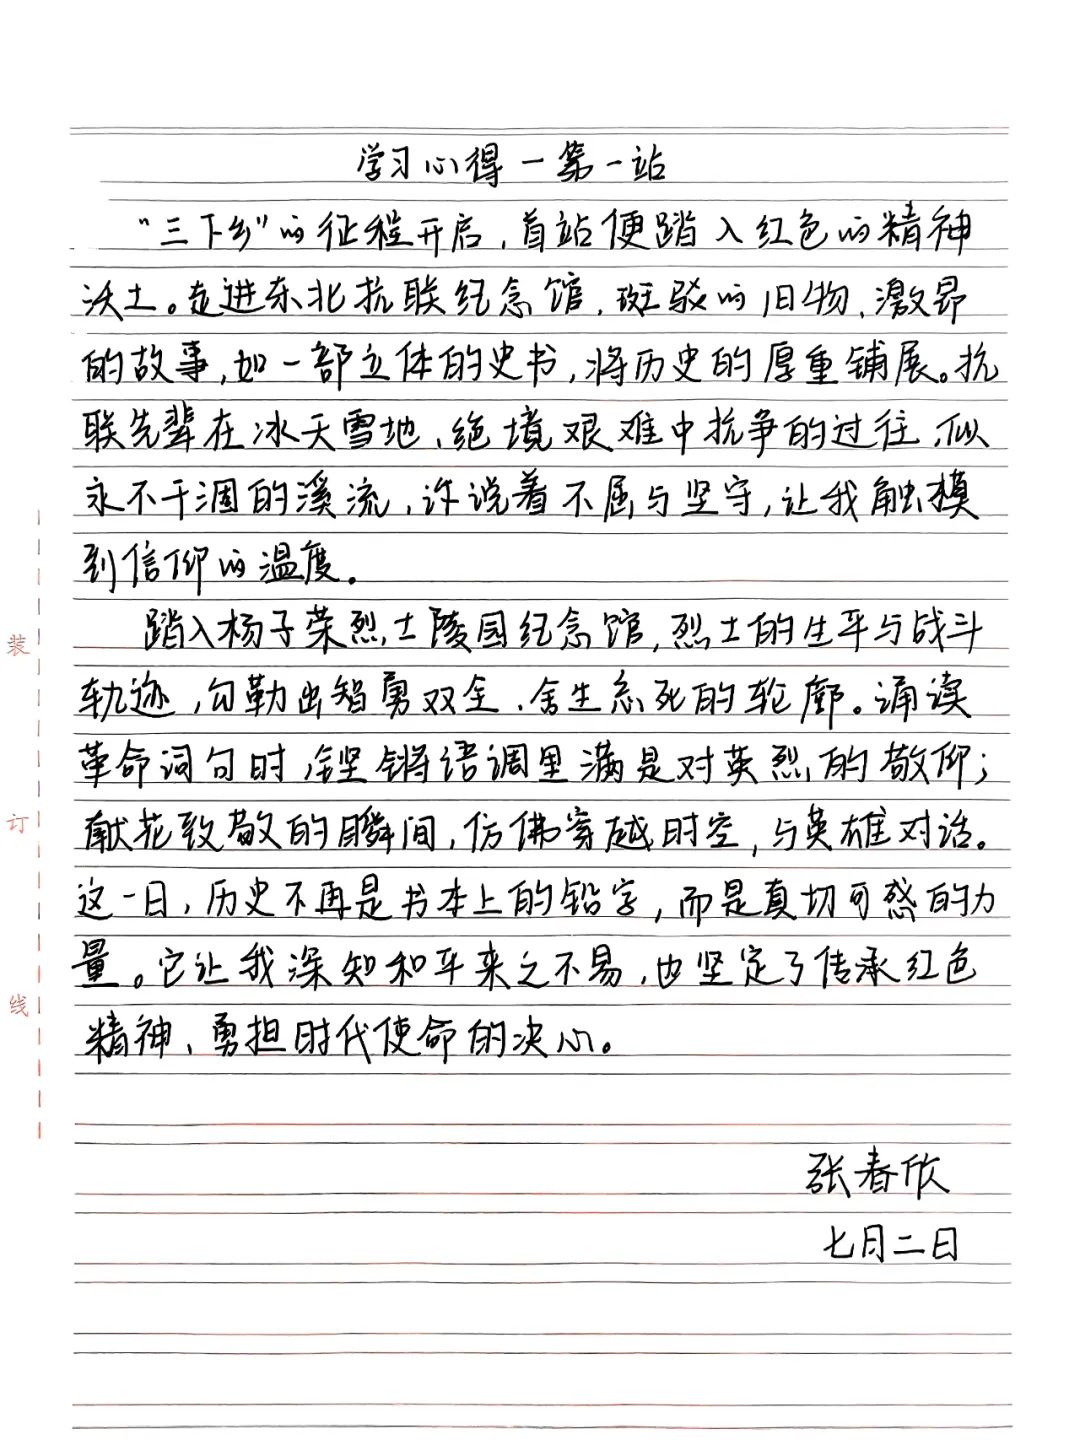 学习心得一第一站
“三下乡”的征程开启，首站便踏入红色的精神
沃土。走进东北抗联纪念馆，斑驳的旧物、激昂
的故事，如一部立体的史书，将历史的厚重铺展。抗
联先辈在冰天雪地、绝境艰难中抗争的过往，似
永不干涸的溪流，诉说着不屈与坚守，让我触摸
到信仰的温度。
踏入杨子荣烈士陵园纪念馆，烈士的生平与战斗
轨迹，勾勒出智勇双全、舍生忘死的轮廓。诵读
革命词句时，铿锵语调里满是对英烈的敬仰；
献花致敬的瞬间，仿佛穿越时空，与英雄对话。
这一日，历史不再是书本上的铅字，而是真切可感的力
量。它让我深知和平来之不易，也坚定了传承红色
精神、勇担时代使命的决心。
张春欣
七月二日
装
订
线